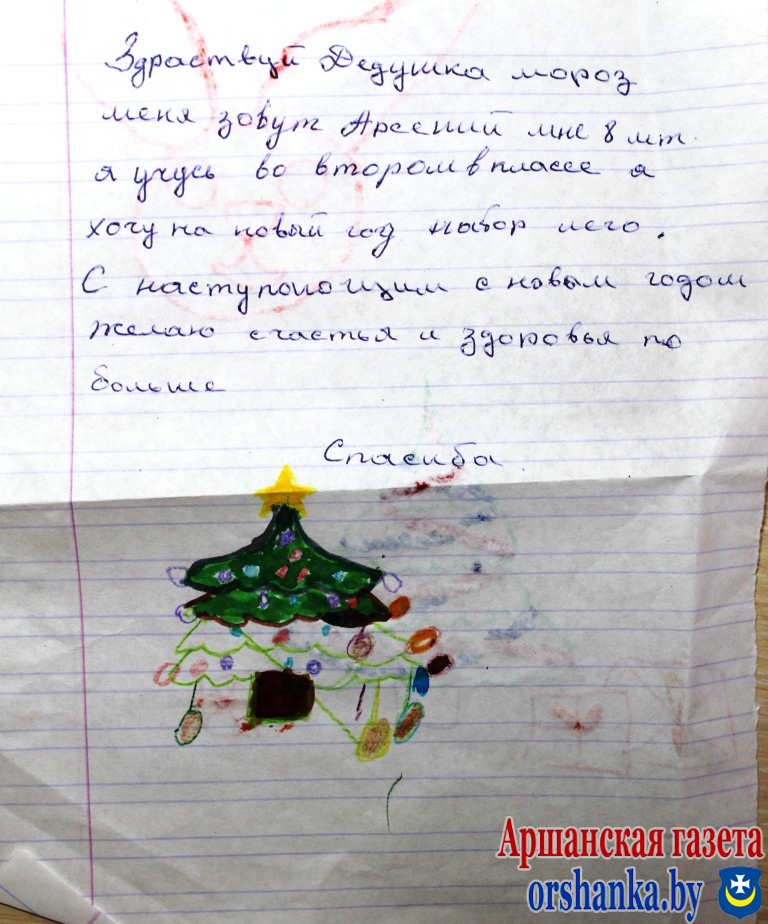 Здраствуй Дедушка мороз
меня зовут Арсений мне 8 лет.
я учусь во втором в классе я
хочу на новый год набор лего.
С наступоющим с новым годом
желаю счастья и здоровья по
больше
Спасиба
Аршанская газета
orshanka.by